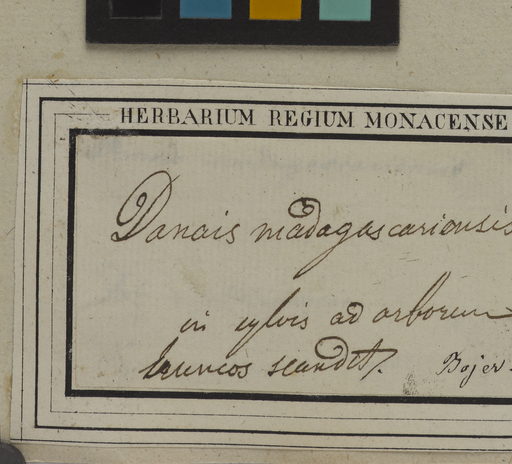 HERBARIUM REGIUM MONACENSE
Danais madagascariensis
in sylvis ad arborum
truncos scandit. Bojer.